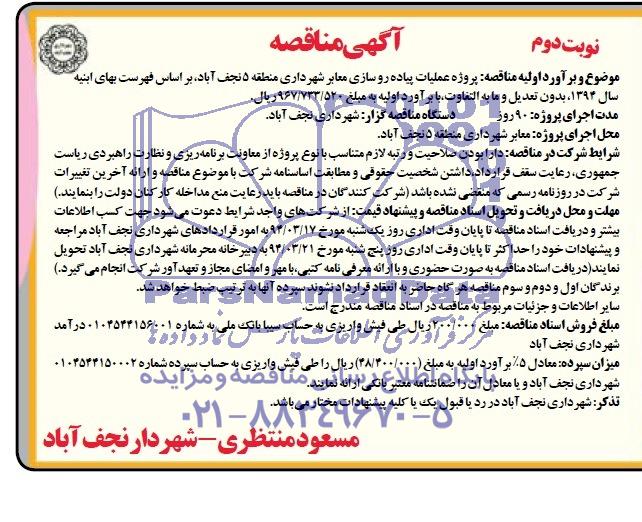 نوبت دوم
آگهی مناقصه
موضوع و برآورد اولیه مناقصه: پروژه عملیات پیاده رو سازی معابر شهرداری منطقه ۵ نجف آباد، بر اساس فهرست بهای ابنیه
سال ۱۳۹۴، بدون تعدیل و مابه التفاوت، با برآورد اولیه به مبلغ ۹۶۷/۷۳۳/۵۲۰ ریال.
مدت اجرای پروژه: ۹۰ روز دستگاه مناقصه گزار: شهرداری نجف آباد.
محل اجرای پروژه: معابر شهرداری منطقه ۵ نجف آباد.
شرایط شرکت در مناقصه: دارا بودن صلاحیت و رتبه لازم متناسب با نوع پروژه از معاونت برنامه ریزی و نظارت راهبردی ریاست
جمهوری، رعایت سقف قرارداد، داشتن شخصیت حقوقی و مطابقت اساسنامه شرکت با موضوع مناقصه و ارائه آخرین تغییرات
شرکت در روزنامه رسمی که منقضی نشده باشد (شرکت کنندگان در مناقصه باید رعایت منع مداخله کارکنان دولت را بنمایند.)
مهلت و محل دریافت و تحویل اسناد مناقصه و پیشنهاد قیمت: از شرکت های واجد شرایط دعوت می شود جهت کسب اطلاعات
بیشتر و دریافت اسناد مناقصه تا پایان وقت اداری روز یک شنبه مورخ ۹۴/۰۳/۱۷ به امور قراردادهای شهرداری نجف آباد مراجعه
و پیشنهادات خود را حداکثر تا پایان وقت اداری روز پنج شنبه مورخ ۹۴/۰۳/۲۱ به دبیرخانه محرمانه شهرداری نجف آباد تحویل
نمایند (دریافت اسناد مناقصه به صورت حضوری و با ارائه معرفی نامه کتبی، با مهر و امضای مجاز و تعهدآور شرکت انجام می گیرد.)
برندگان اول و دوم و سوم مناقصه هر گاه حاضر به انعقاد قرارداد نشوند سپرده آنها به ترتیب ضبط خواهد شد.
سایر اطلاعات و جزئیات مربوط به مناقصه در اسناد مناقصه مندرج است.
مبلغ فروش اسناد مناقصه: مبلغ ۲۰۰/۰۰۰ ریال طی فیش واریزی به حساب سیبا بانک ملی به شماره ۰۱۰۴۵۴۴۱۵۶۰۰۱ درآمد
شهرداری نجف آباد
میزان سپرده: معادل ۵٪ برآورد اولیه به مبلغ (۴۸/۴۰۰/۰۰۰) ریال را طی فیش واریزی به حساب سپرده شماره ۰۱۰۴۵۴۴۱۵۰۰۰۲
شهرداری نجف آباد و یا معادل آن را ضمانتنامه معتبر بانکی ارائه نمایند.
تذکر: شهرداری نجف آباد در رد یا قبول یک یا کلیه پیشنهادات مختار می باشد.
مسعود منتظری - شهردار نجف آباد
ParsNamadData
مرکز فرآوری اطلاعات پارس نماد داده ها
پایگاه اطلاع رسانی مناقصه و مزایده
۰۲۱-۸۸۳۴۹۶۷۰-۵